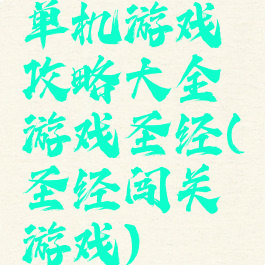 单机游戏
攻略大全
游戏圣经(
圣经闯关
游戏)